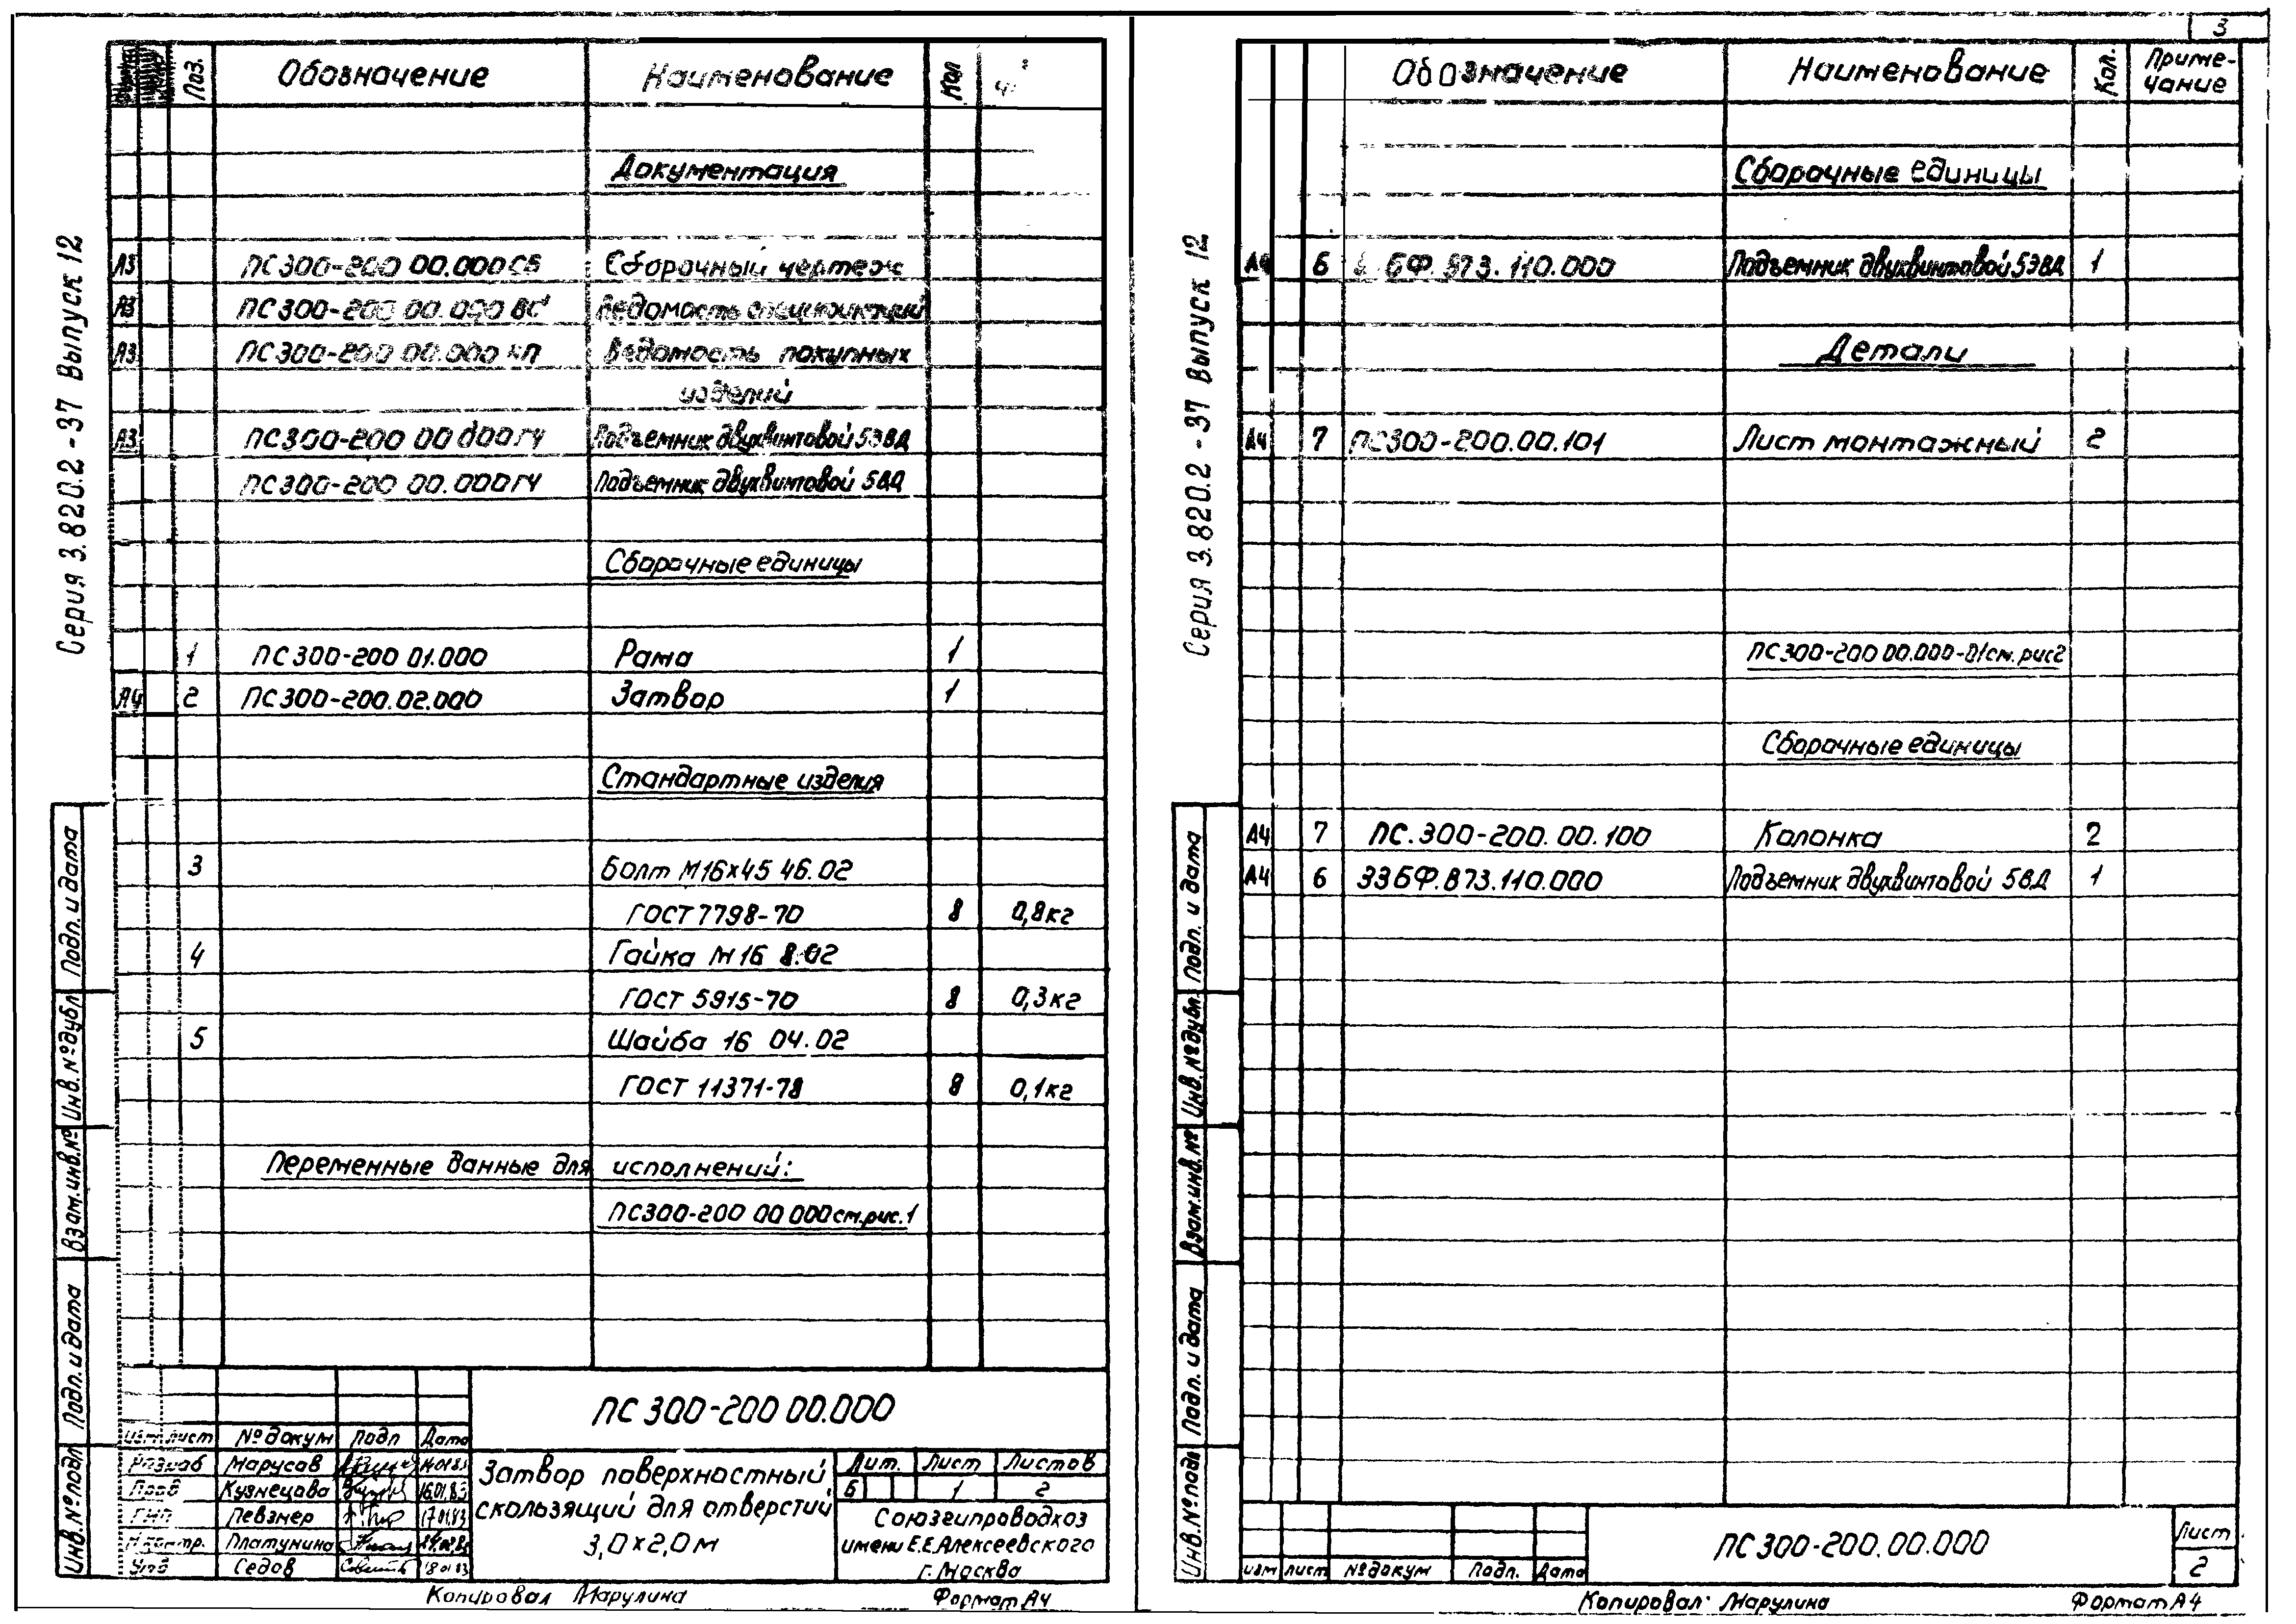 Серия 3.820.2-37 Выпуск 12
Поз. Обозначение Наименование Кол
Документация
А3 ПС300-200 00.000СБ Сборочный чертеж
А3 ПС300-200 00.000 ВС Ведомость спецификаций
А3 ПС300-200 00.000 КП Ведомость покупных
изделий
А3 ПС300-200 00 000ГЧ Подъемник двухвинтовой 5ЭВД
ПС300-200 00.000ГЧ Подъемник двухвинтовой 5ВД
Сборочные единицы
1 ПС300-200 01.000 Рама 1
А4 2 ПС300-200.02.000 Затвор 1
Стандартные изделия
3 Болт М16х45 46.02
ГОСТ 7798-70 8 0,8кг
4 Гайка М16 8.02
ГОСТ 5915-70 8 0,3кг
5 Шайба 16 04.02
ГОСТ 11371-78 8 0,1кг
Переменные данные для исполнений:
ПС300-200 00 000 см.рис.1
Инв.№подл Подп. и дата Взам.инв.№ Инв.№дубл Подп. и дата
ПС 300-200 00.000
Изм Лист №докум Подп Дата
Разраб Марусов 14.01.83
Пров Кузнецова 16.01.83
ГИП Левзнер 17.01.83
Н.контр. Платунина
Утв Седов 18 01 83
Затвор поверхностный
скользящий для отверстий
3,0х2,0м
Лит. Лист Листов
Б 1 2
Союзгипроводхоз
имени Е.Е.Алексеевского
г. Москва
Копировал Марулина Формат А4
3
Серия 3.820.2-37 Выпуск 12
Обозначение Наименование Кол. Приме-
чание
Сборочные единицы
А4 6 БФ.873.110.000 Подъемник двухвинтовой 5ЭВД 1
Детали
А4 7 ПС300-200.00.101 Лист монтажный 2
ПС300-200 00.000-01см.рис2
Сборочные единицы
А4 7 ПС.300-200.00.100 Колонка 2
А4 6 ЗЗБФ.873.110.000 Подъемник двухвинтовой 5ВД 1
Инв.№подл Подп. и дата Взам.инв.№ Инв.№дубл. Подп. и дата
Изм Лист №докум Подп. Дата
ПС300-200.00.000
Лист
2
Копировал: Марулина Формат А4